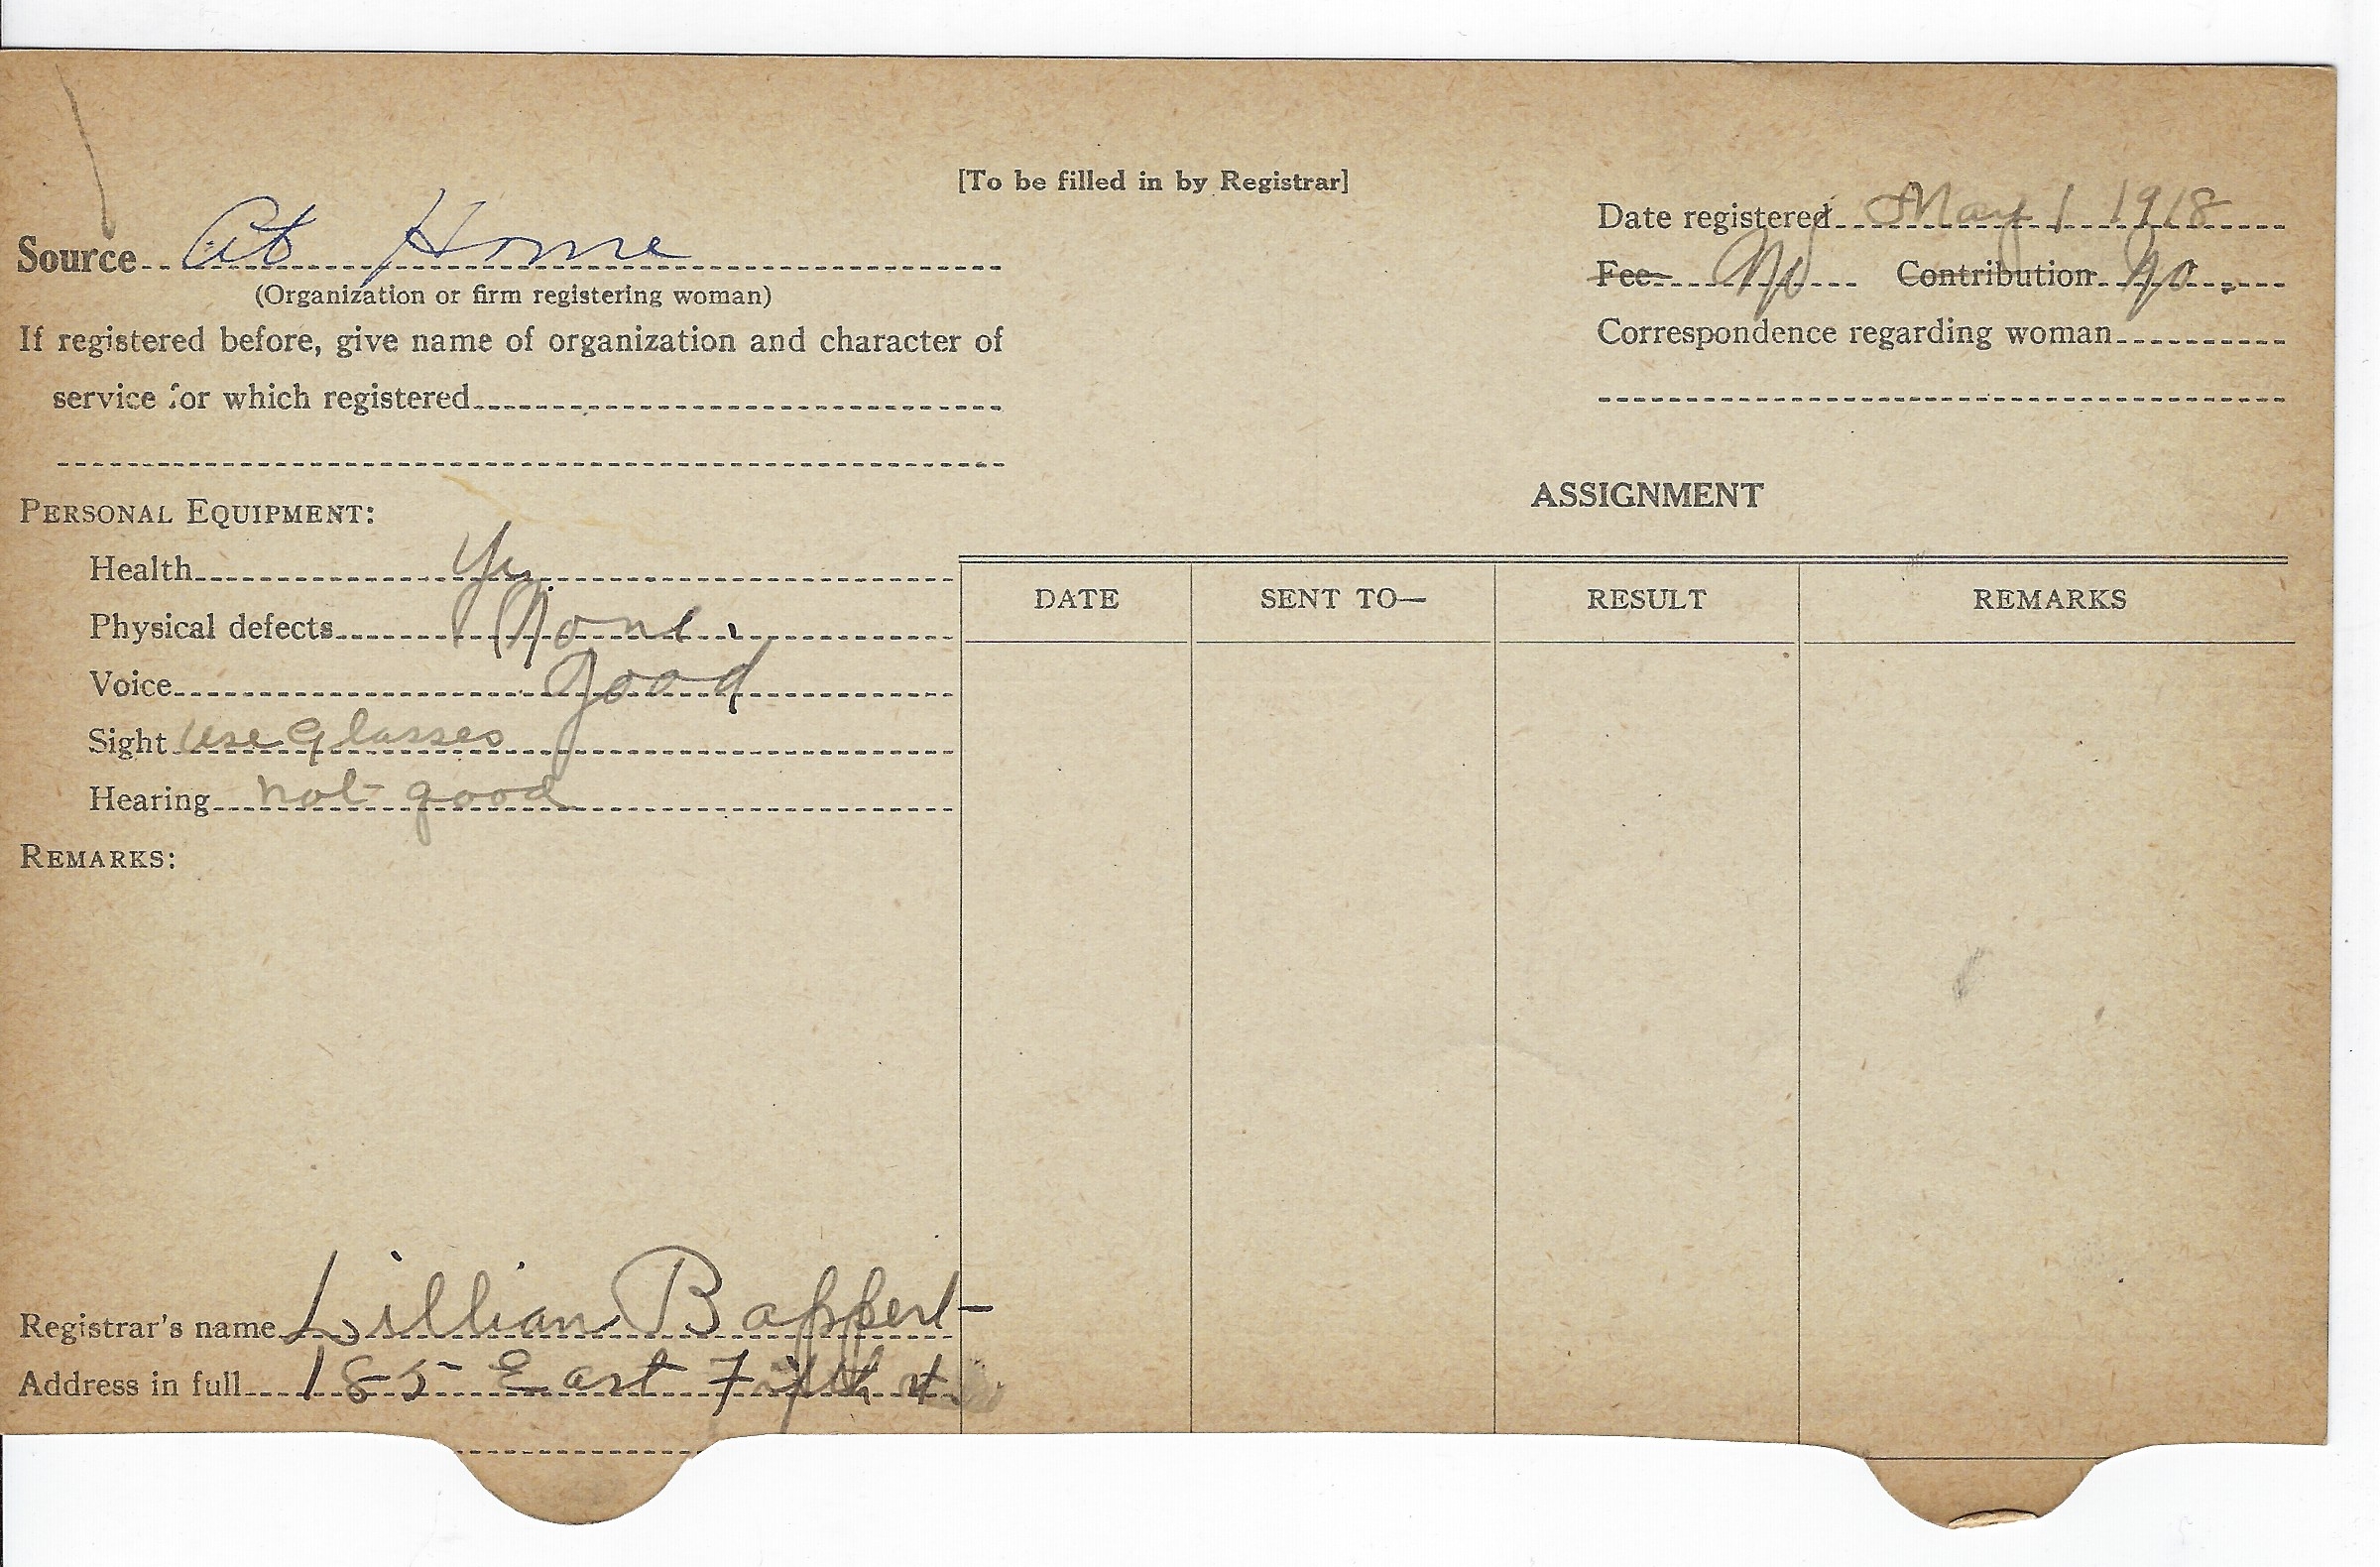 [To be filled in by Registrar]
Source At Home
(Organization or firm registering woman)
If registered before, give name of organization and character of
service for which registered
Date registered May 1 1918
Fee No Contribution No.
Correspondence regarding woman
PERSONAL EQUIPMENT:
Health Yes
Physical defects None.
Voice Good
Sight Use Glasses
Hearing not good
REMARKS:
Registrar's name Lillian Bappert
Address in full 185 East Fifth st.
ASSIGNMENT
DATE SENT TO— RESULT REMARKS